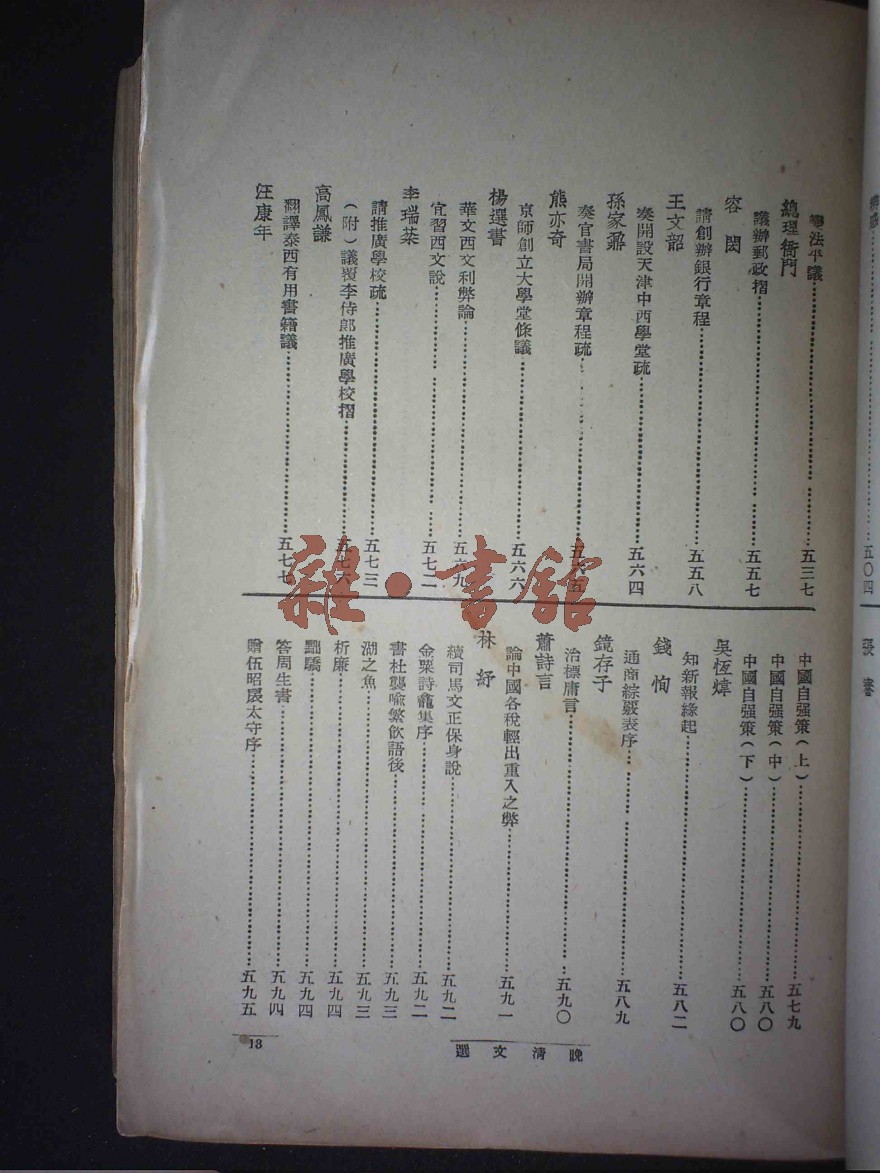 變法平議……五三七
總理衙門
議辦郵政摺……五五七
容閎
請創辦銀行章程……五五八
王文韶
奏開設天津中西學堂疏……五六四
孫家鼐
奏官書局開辦章程疏……五六五
熊亦奇
京師創立大學堂條議……五六六
楊選書
華文西文利弊論……五六九
宜習西文說……五七二
李瑞棻
請推廣學校疏……五七三
（附）議覆李侍郎推廣學校摺……五七六
高鳳謙
翻譯泰西有用書籍議……五七七
汪康年
中國自强策（上）……五七九
中國自强策（中）……五八〇
中國自强策（下）……五八〇
吳恆煒
知新報緣起……五八二
錢恂
通商綜覈表序……五八九
鏡存子
治標庸言……五九〇
蕭詩言
論中國各稅輕出重入之弊……五九一
林紓
續司馬文正保身說……五九二
金粟詩龕集序……五九二
書杜襲喻繁欽語後……五九三
湖之魚……五九三
析廉……五九四
黜驕……五九四
答周生書……五九四
贈伍昭扆太守序……五九五
晚清文選
18
五〇四
張謇
雜·書館